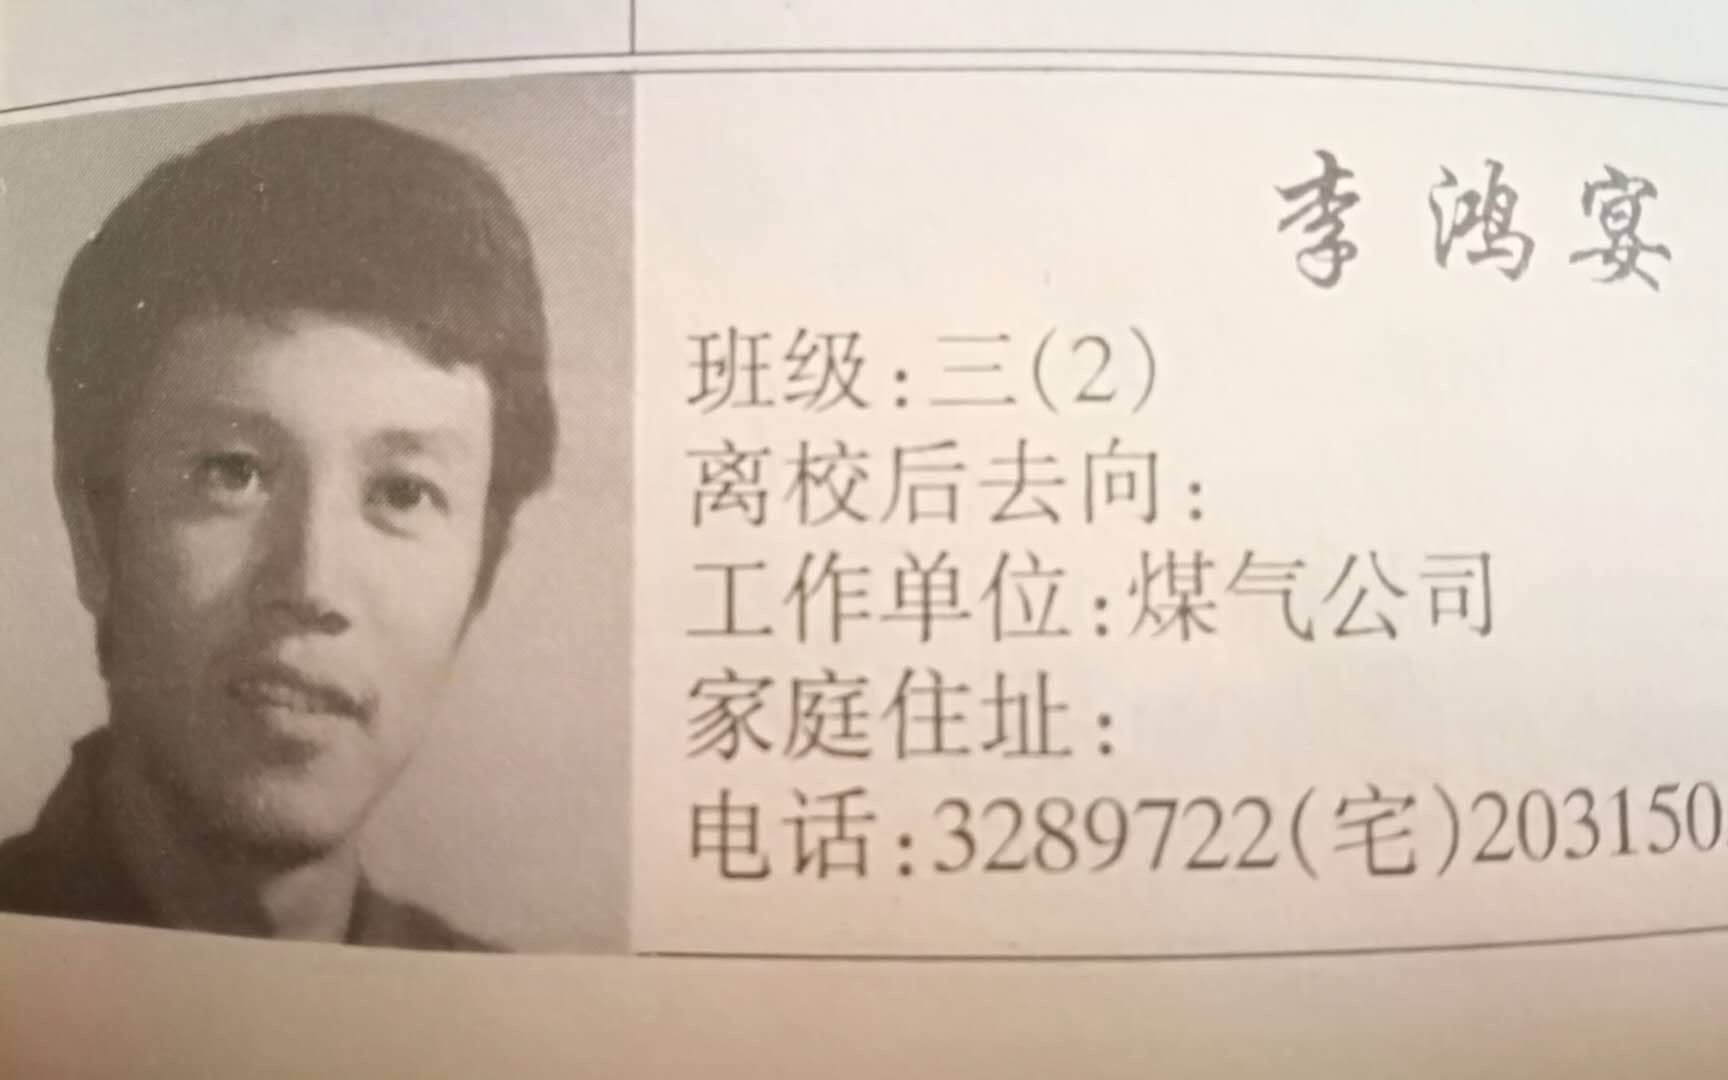 李鸿宴
班级:三(2)
离校后去向:
工作单位:煤气公司
家庭住址:
电话:3289722(宅)203150